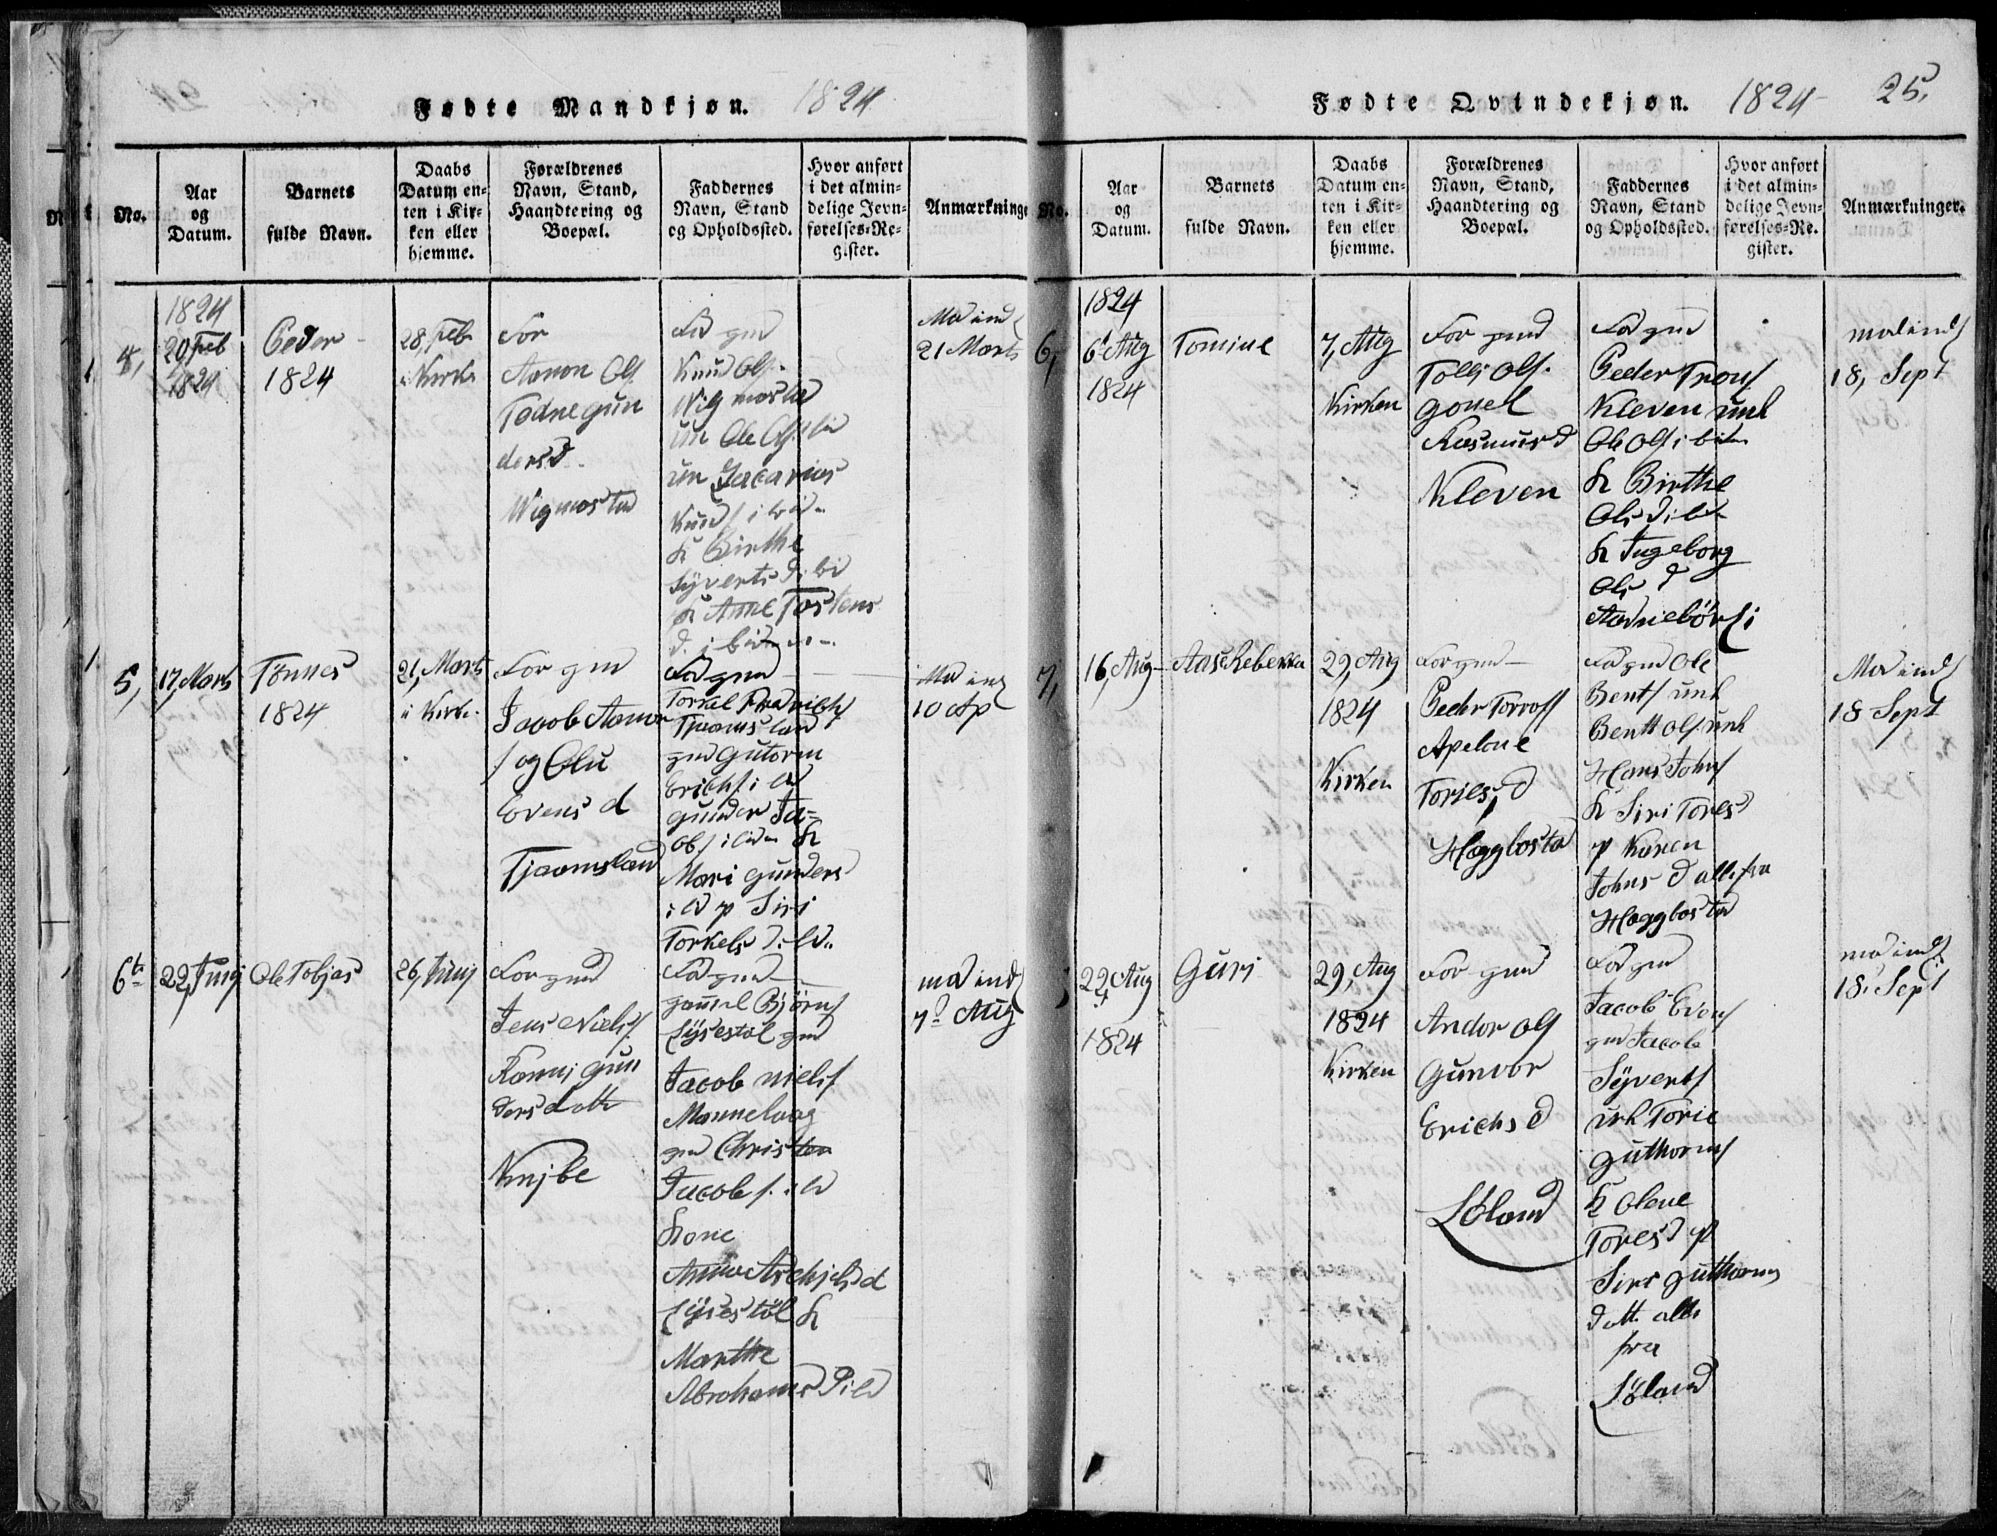 Fødte Mandkjøn. 1824
No.
Aar
og
Datum.
Barnets
fulde Navn.
Daabs
Datum en-
ten i Kir-
ken eller
hjemme.
Forældrenes
Navn, Stand,
Haandtering og
Boepæl.
Faddernes
Navn, Stand
og Opholdssted.
Hvor anført
i det almin-
delige Jevn-
førelses-Re-
gister.
Anmærkninge
4,
1824
20, Feb
1824
Peder
1824
28, Feb
i Kirke
For
Aanon Ols
Todne gun
dersd.
Wigmostad
Fad gmd
Knud Ols.
Wigmostad
un Ole Ols ibid
un Zacarias
Knuds ibid
K Birthe
Syverts d. ibid
K Anne Tostens
d. ibid
Mod inds
21 Marts
5,
17, Marts
Tønnes
1824
21, Marts
i Kirke
For gmd
Jacob Aanon
s og Olu
Evens d
Tjaamsland
Fad gmd
Torkel Fredrichs
Tjaamsland
gmd Gutorm
Erichs ibid
gunder Ja-
obs ibid K
Mari gunders
ibid p Siri
Torkels d. ibid
Mod inds
10 Ap
6te
22, Junij
Ole Tobjas
26, Junij
For gmd
Jens Niels
Ranni gun
ders dotte
Knibe
Fad gmd
gamel Bjørns
Lysestøl gmd
Jacob Niels
Mannelaag
gmd Christen
Jacobs. ibid
Kone
Anne Aschjels d
Lysestøl K
Marthe
Abrahams d ibid
mod inds
7de Aug
Fødte Qvindekjøn. 1824 25.
No.
Aar
og
Datum.
Barnets
fulde Navn.
Daabs
Datum en-
ten i Kir-
ken eller
hjemme.
Forældrenes
Navn, Stand,
Haandtering og
Boepæl.
Faddernes
Navn, Stand
og Opholdssted.
Hvor anført
i det almin-
delige Jevn-
førelses-Re-
gister.
Anmærkninger.
6,
1824
6, Aug
1824
Tomine
7, Aug
Kirken
For gmd
Tolli Ols.
Gonel
Rasmus d
Kleven
Fad gmd
Peder Trons
Kleven unk
Ole Ols ibid
K Birthe
Ols d ibid
K Ingeborg
Ols d
mod inds
18, Sept
7,
16, Aug
Aase Rebekka
29, Aug
1824
Kirken
For gmd
Peder Torrols
Apelone
Tories d
Hæggbostad
Fad gmd Ole
Bents unk
Bent Ols unk
Hans Johns
K Siri Tores d
p Karen
Johns d alle fra
Hæggbostad
Mod inds
18 Sept
22, Aug
1824
Guri
29, Aug
1824
Kirken
For gmd
Andor Ols
Gunvor
Erichs d
Løland
Fad gmd
Jacob Evens
gmd Jacob
Syverts
unk Torie
Guthorms
K Olene
Tores d p
Siri Guthorms
dott alle
fra
Løland
mod inds
18, Sept